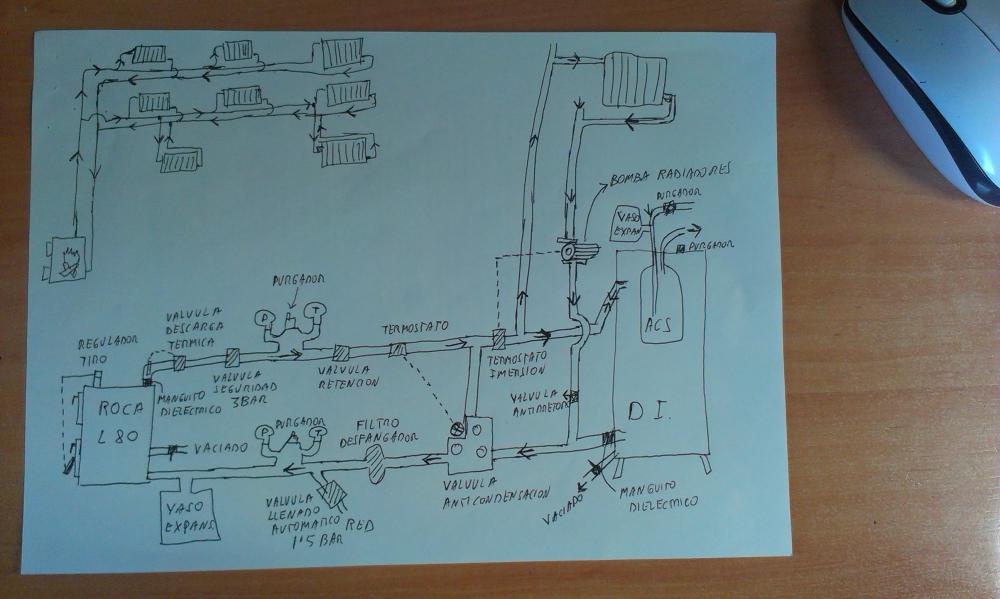 BOMBA RADIADORES
PURGADOR
VASO
EXPAN
PURGADOR
ACS
PURGADOR
P
T
VALVULA
DESCARGA
TERMICA
REGULADOR
TIRO
TERMOSTATO
TERMOSTATO
IMERSION
VALVULA
RETENCION
VALVULA
SEGURIDAD
3BAR
MANGUITO
DIELECTRICO
VALVULA
ANTIRRETOR
ROCA
L 80
D I.
PURGADOR
P
T
FILTRO
DESFANGADOR
VACIADO
VALVULA
ANTICONDENSACION
VASO
EXPANS
VALVULA
LLENADO
AUTOMATICO
1'5 BAR
RED
VACIADO
MANGUITO
DIELECTRICO